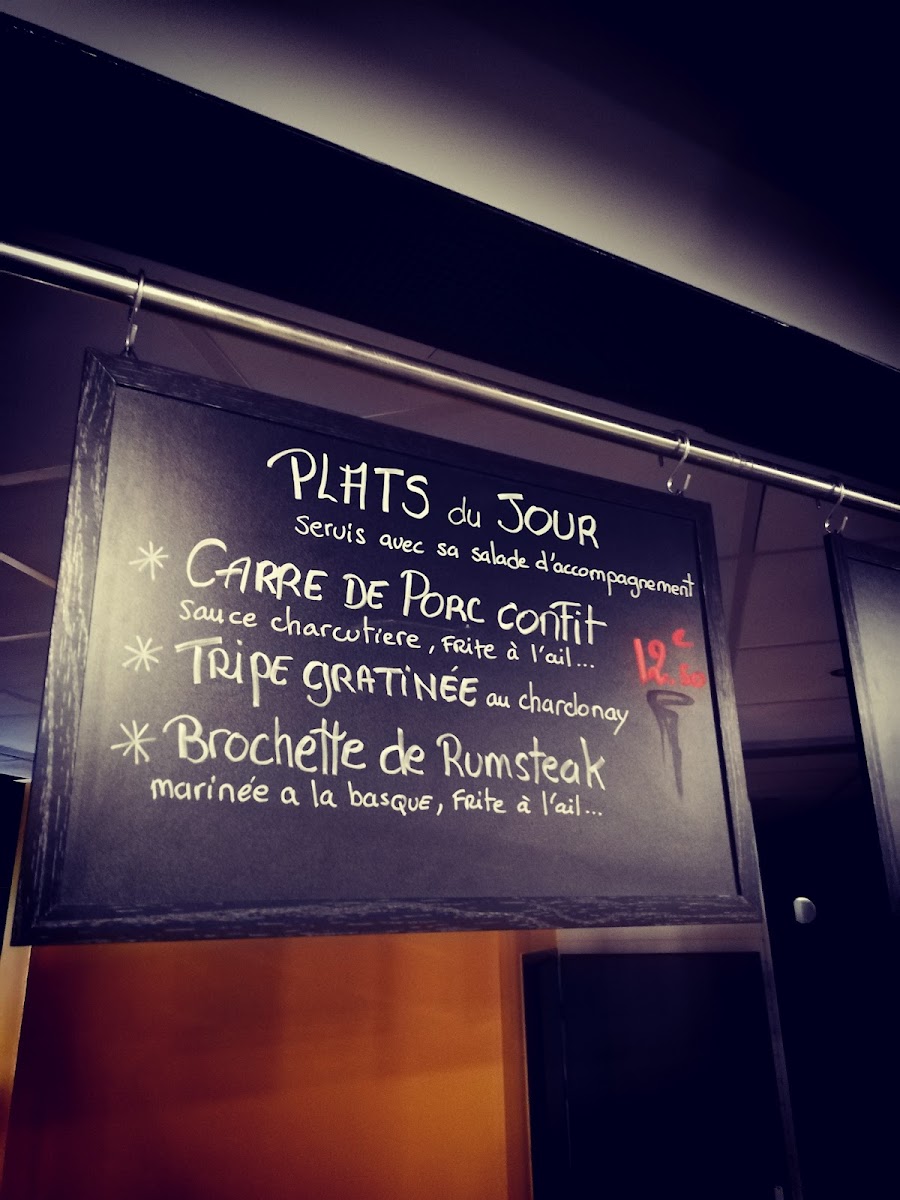 PLATS du JOUR
servis avec sa salade d'accompagnement
* CARRE DE PORC CONFIT
sauce charcutiere, FRite à l'ail...
* TRIPE GRATINÉE au chardonay
12€.50
* Brochette de Rumsteak
marinée a la basque, FRite à l'ail...